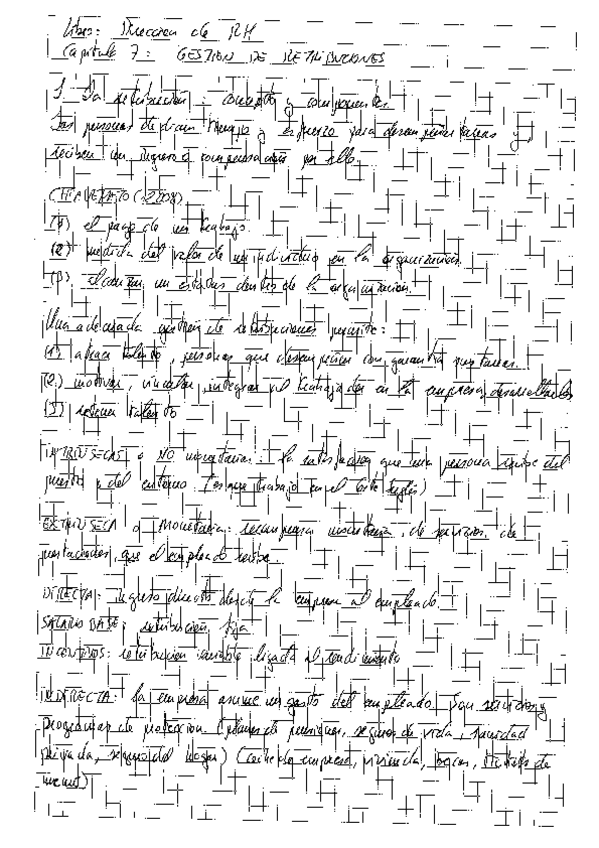 Libro: Direccion de RH
Capitulo 7: GESTION DE RETRIBUCIONES
1. La retribucion: concepto y componentes
Las personas dedican tiempo y esfuerzo para desempeñar tareas y
reciben un ingreso o compensación por ello.
CHIAVENATO (2008)
(1) el pago de un trabajo.
(2) medida del valor de un individuo en la organización.
(3) alcanzar un estatus dentro de la organizacion.
Una adecuada gestion de retribuciones permite:
(1) atraer talento, personas que desempeñen con garantia sus tareas.
(2) motivar, vincular, integrar al trabajador en la empresa, desarrollarlos
(3) retener talento
INTRINSECAS o NO monetarias: la satisfaccion que una persona recibe del
puesto y del entorno. (es que trabajo en el Corte Inglés)
EXTRINSECA o Monetaria: recompensa monetaria, de servicios, de
prestaciones, que el empleado recibe.
DIRECTA: ingreso directo desde la empresa al empleado.
SALARIO BASE: retribucion fija
INCENTIVOS: retribucion variable ligada al rendimiento
INDIRECTA: la empresa asume un gasto del empleado. Son servicios y
programas de proteccion. (planes de pensiones, seguros de vida, sanidad
privada, seguro del hogar) (coche de empresa, vivienda, becas, tickets de
menu)